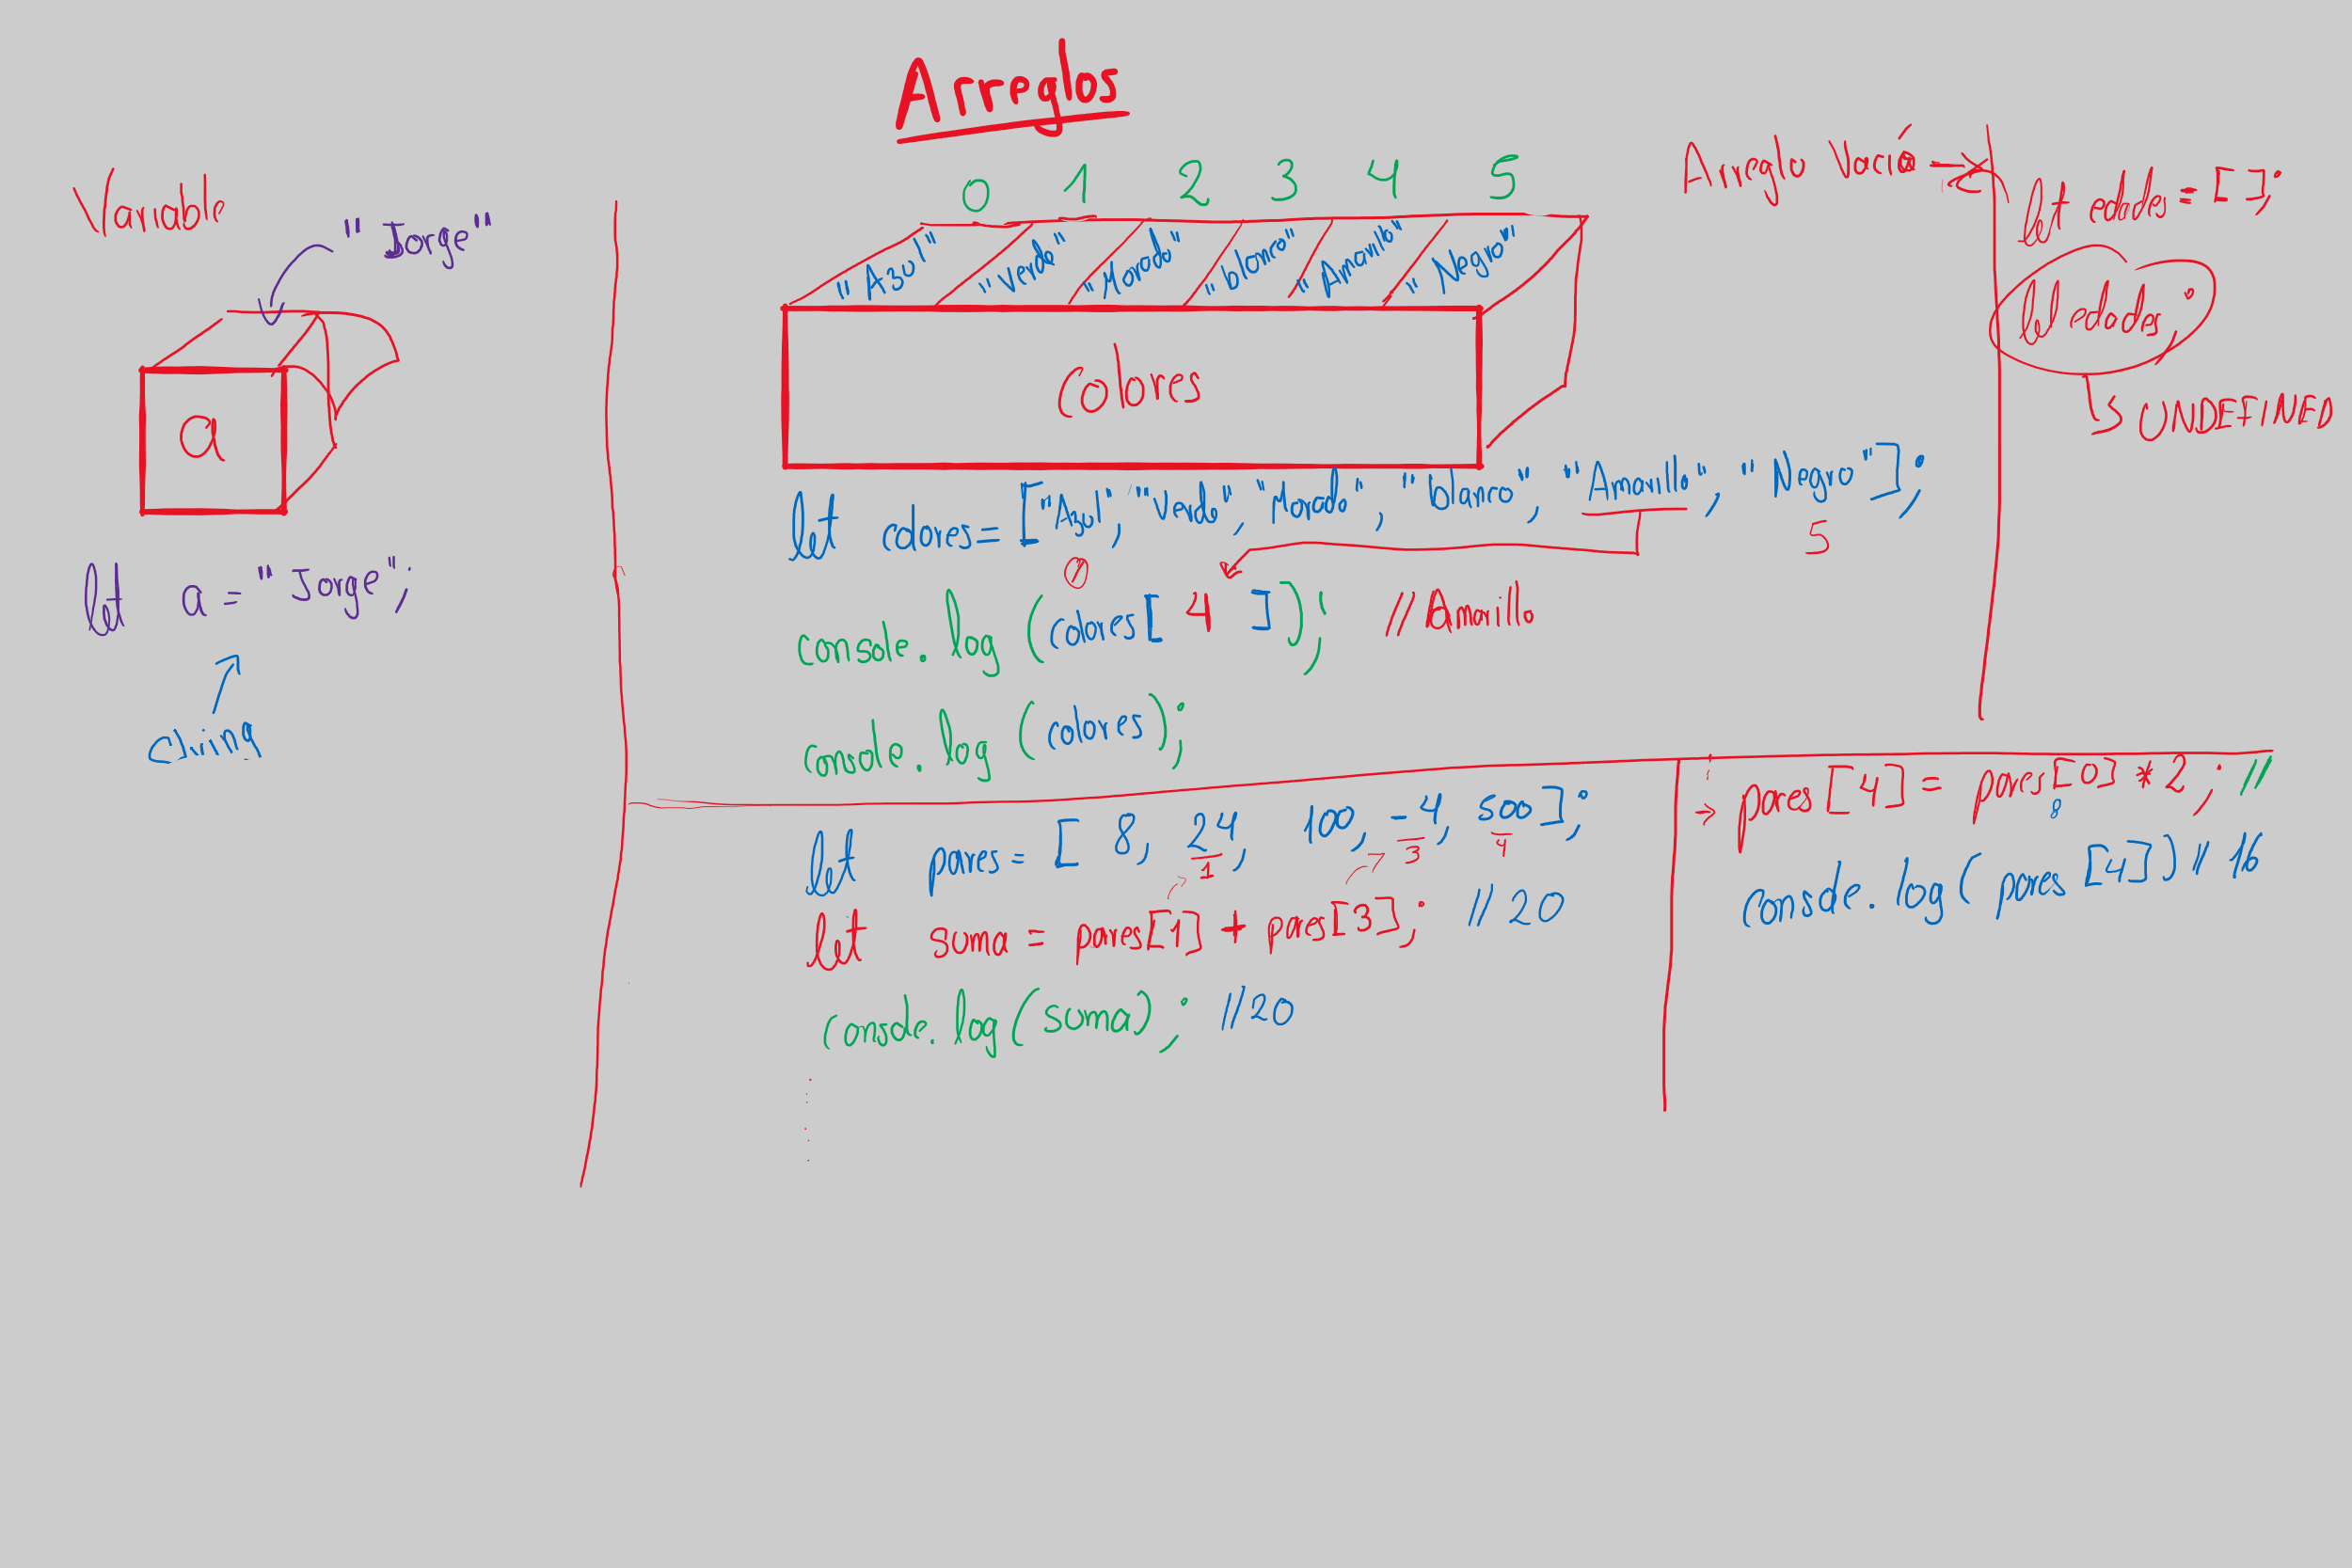 Arreglos
Variable
"Jorge"
a
let a = "Jorge";
String
0 1 2 3 4 5
"Azul" "Verde" "Morado" "blanco" "Amarillo" "Negro"
Colores
let colores = ["Azul", "Verde", "Morado", "blanco", "Amarillo", "Negro"];
0 5
console.log (colores[ 4 ]); // Amarillo
console.log (colores);
Arreglo Vació
let edades = [ ];
let edades;
UNDEFINED
let pares = [ 8, 24, 100, -4, 500 ];
1 3 4
let suma = pares[1] + pares[3]; // 20
console.log(suma); // 20
pares [4] = pares[0] * 2; //
8
console.log( pares [4]) // 16